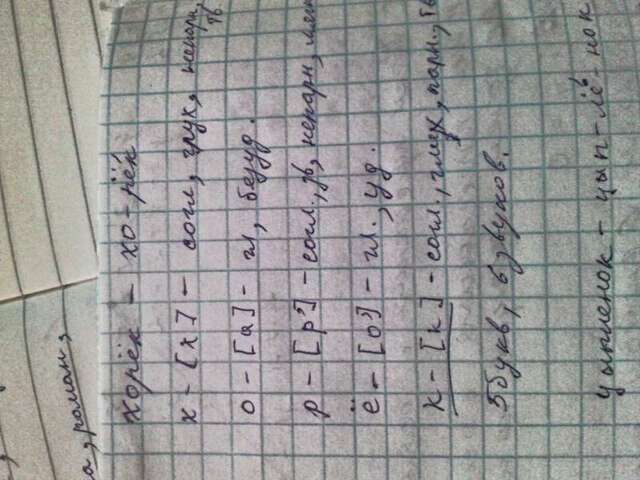 хорёк - хо-рёк
х - [х] - согл, глух, непарн, тв
о - [а] - гл, безуд.
р - [р'] - согл., зв, непарн, мяг
ё - [о'] - гл., уд.
к - [к] - согл., глух, парн, тв
5букв, 5звуков.
цыпленок - цып-лё-нок
а, роман,